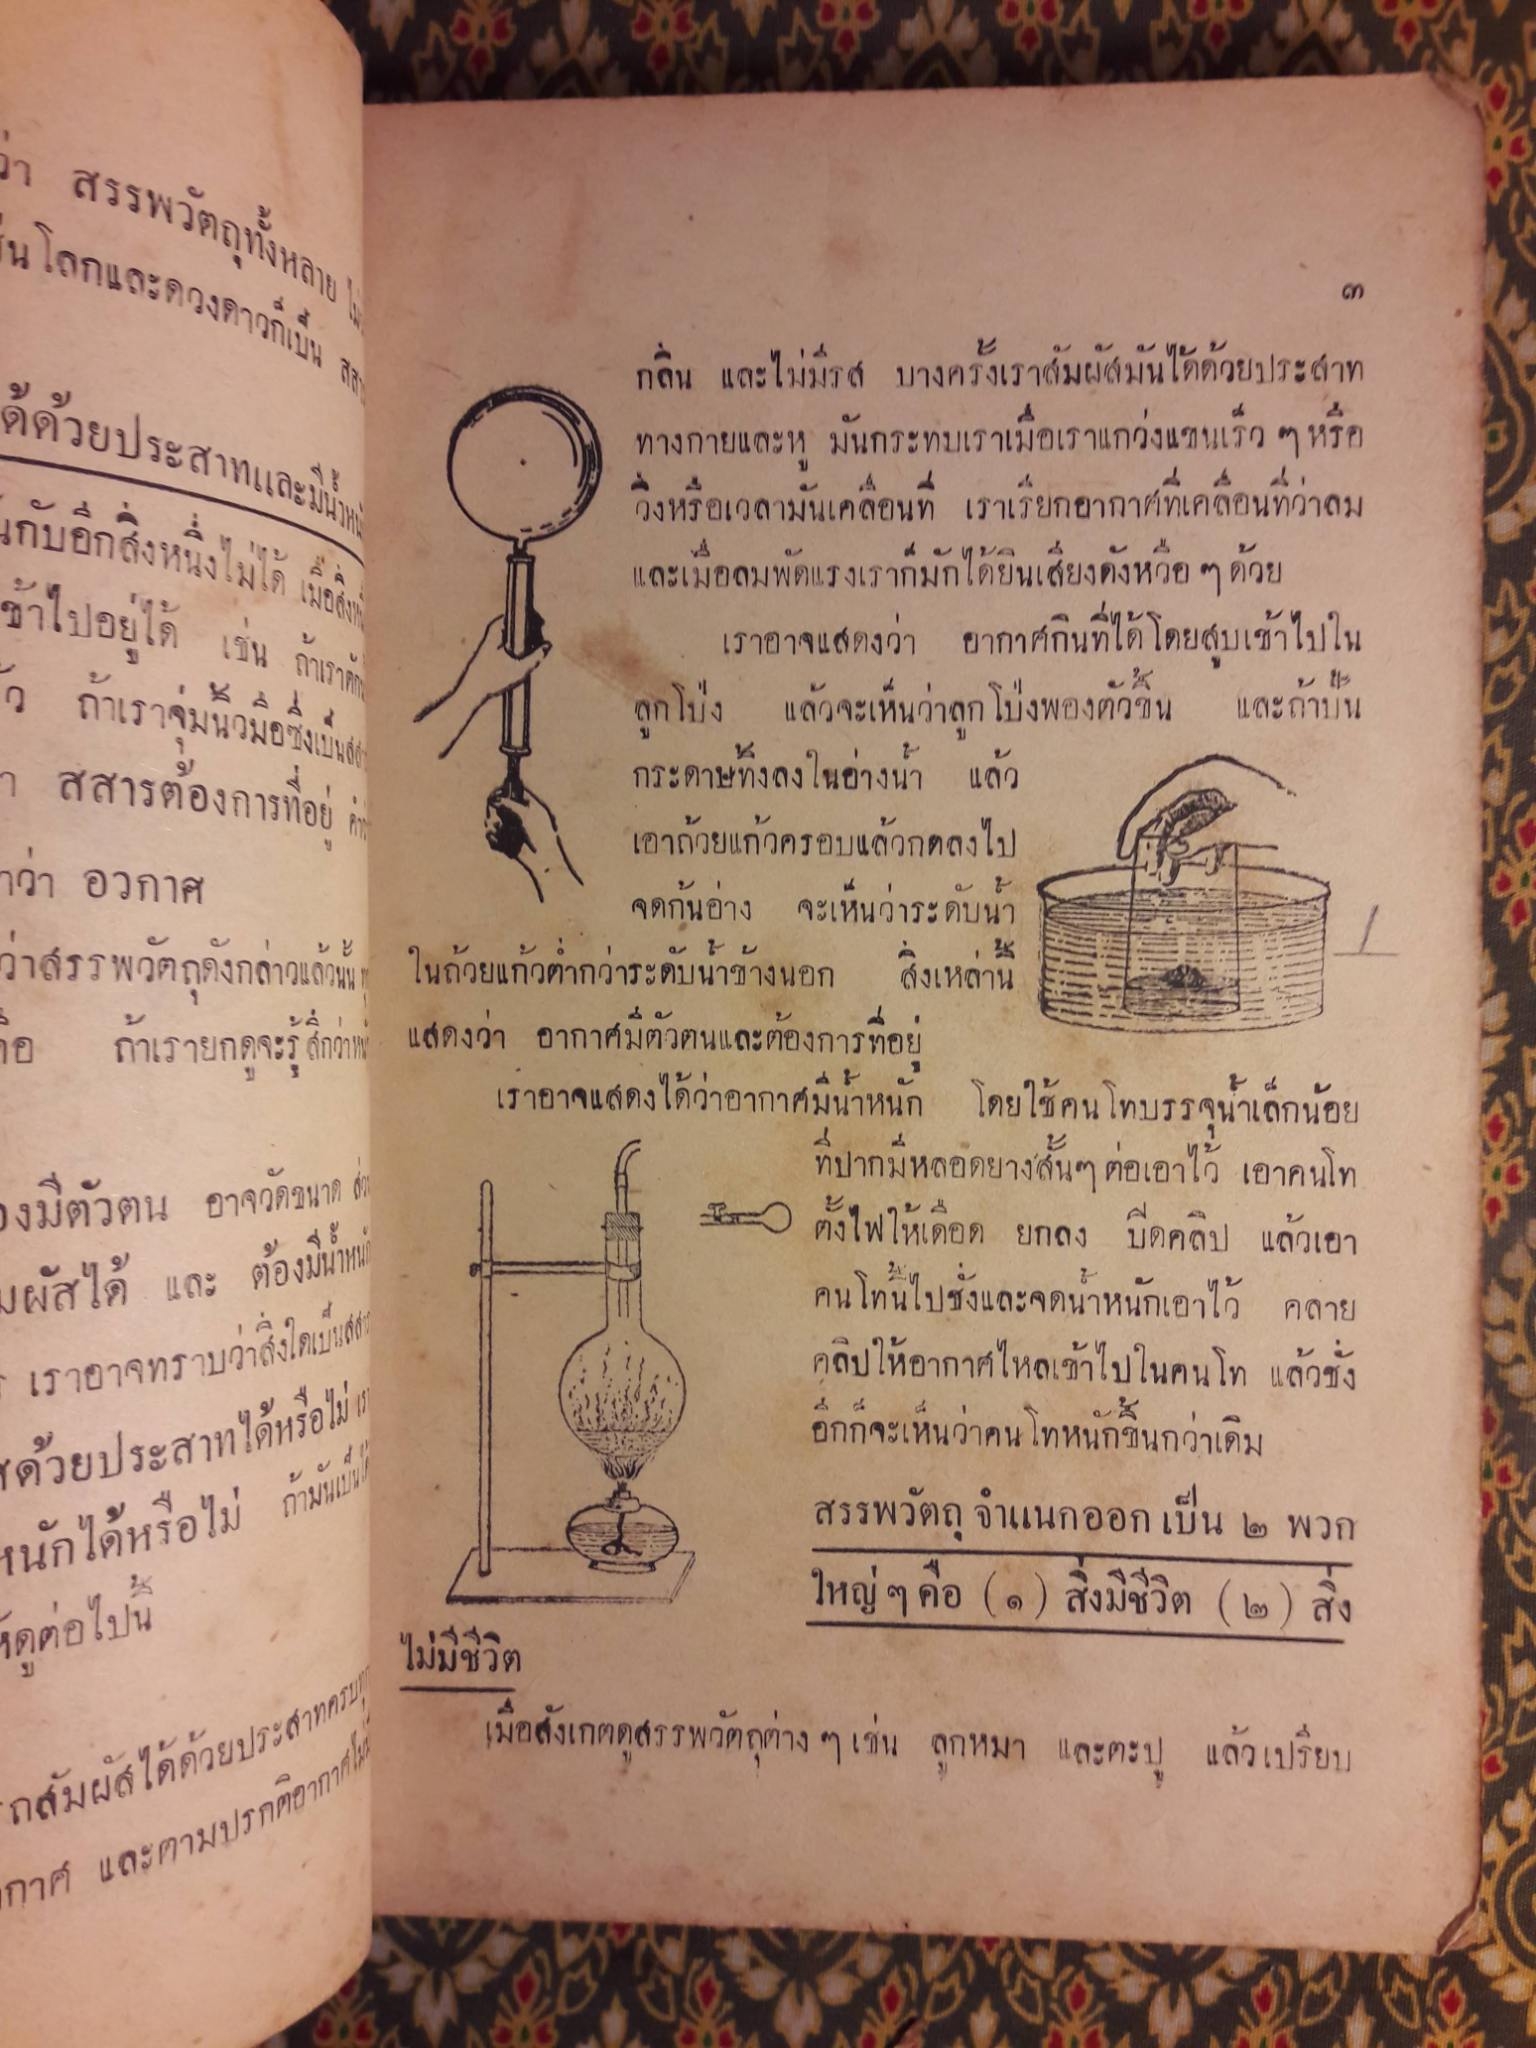 ว่า สรรพวัตถุทั้งหลาย
โลกและดวงดาวก็เป็น
ด้วยประสาทและมีน้ำ
กับอีกสิ่งหนึ่งไม่ได้ เมื่อ
เข้าไปอยู่ได้ เช่น ถ้าเรา
ถ้าเราจุ่มนิ้วมือซึ่งเป็น
สสารต้องการที่อยู่
ว่า อวกาศ
ว่าสรรพวัตถุดังกล่าวแล้วนั้น
ถ้าเรายกดูจะรู้สึกว่า
มีตัวตน อาจวัดขนาด
และ ต้องมีน้ำหนัก
เราอาจทราบว่าสิ่งใดเป็น
ด้วยประสาทได้หรือไม่
ได้หรือไม่ ถ้ามันเป็น
ดูต่อไปนี้
สัมผัสได้ด้วยประสาทครบ
และตามปรกติอากาศ
๓
กลิ่น และไม่มีรส บางครั้งเราสัมผัสมันได้ด้วยประสาท
ทางกายและหู มันกระทบเราเมื่อเราแกว่งแขนเร็ว ๆ หรือ
วิ่งหรือเวลามันเคลื่อนที่ เราเรียกอากาศที่เคลื่อนที่ว่าลม
และเมื่อลมพัดแรงเราก็มักได้ยินเสียงดังหวือ ๆ ด้วย
เราอาจแสดงว่า อากาศกินที่ได้โดยสูบเข้าไปใน
ลูกโป่ง แล้วจะเห็นว่าลูกโป่งพองตัวขึ้น และถ้าปั้น
กระดาษทิ้งลงในอ่างน้ำ แล้ว
เอาถ้วยแก้วครอบแล้วกดลงไป
จดก้นอ่าง จะเห็นว่าระดับน้ำ
ในถ้วยแก้วต่ำกว่าระดับน้ำข้างนอก สิ่งเหล่านี้
แสดงว่า อากาศมีตัวตนและต้องการที่อยู่
เราอาจแสดงได้ว่าอากาศมีน้ำหนัก โดยใช้คนโทบรรจุน้ำเล็กน้อย
ที่ปากมีหลอดยางสั้นๆ ต่อเอาไว้ เอาคนโท
ตั้งไฟให้เดือด ยกลง บีดคลิป แล้วเอา
คนโทนี้ไปชั่งและจดน้ำหนักเอาไว้ คลาย
คลิปให้อากาศไหลเข้าไปในคนโท แล้วชั่ง
อีกก็จะเห็นว่าคนโทหนักขึ้นกว่าเดิม
สรรพวัตถุ จำแนกออก เป็น ๒ พวก
ใหญ่ ๆ คือ (๑) สิ่งมีชีวิต (๒) สิ่ง
ไม่มีชีวิต
เมื่อสังเกตดูสรรพวัตถุต่าง ๆ เช่น ลูกหมา และตะปู แล้วเปรียบ